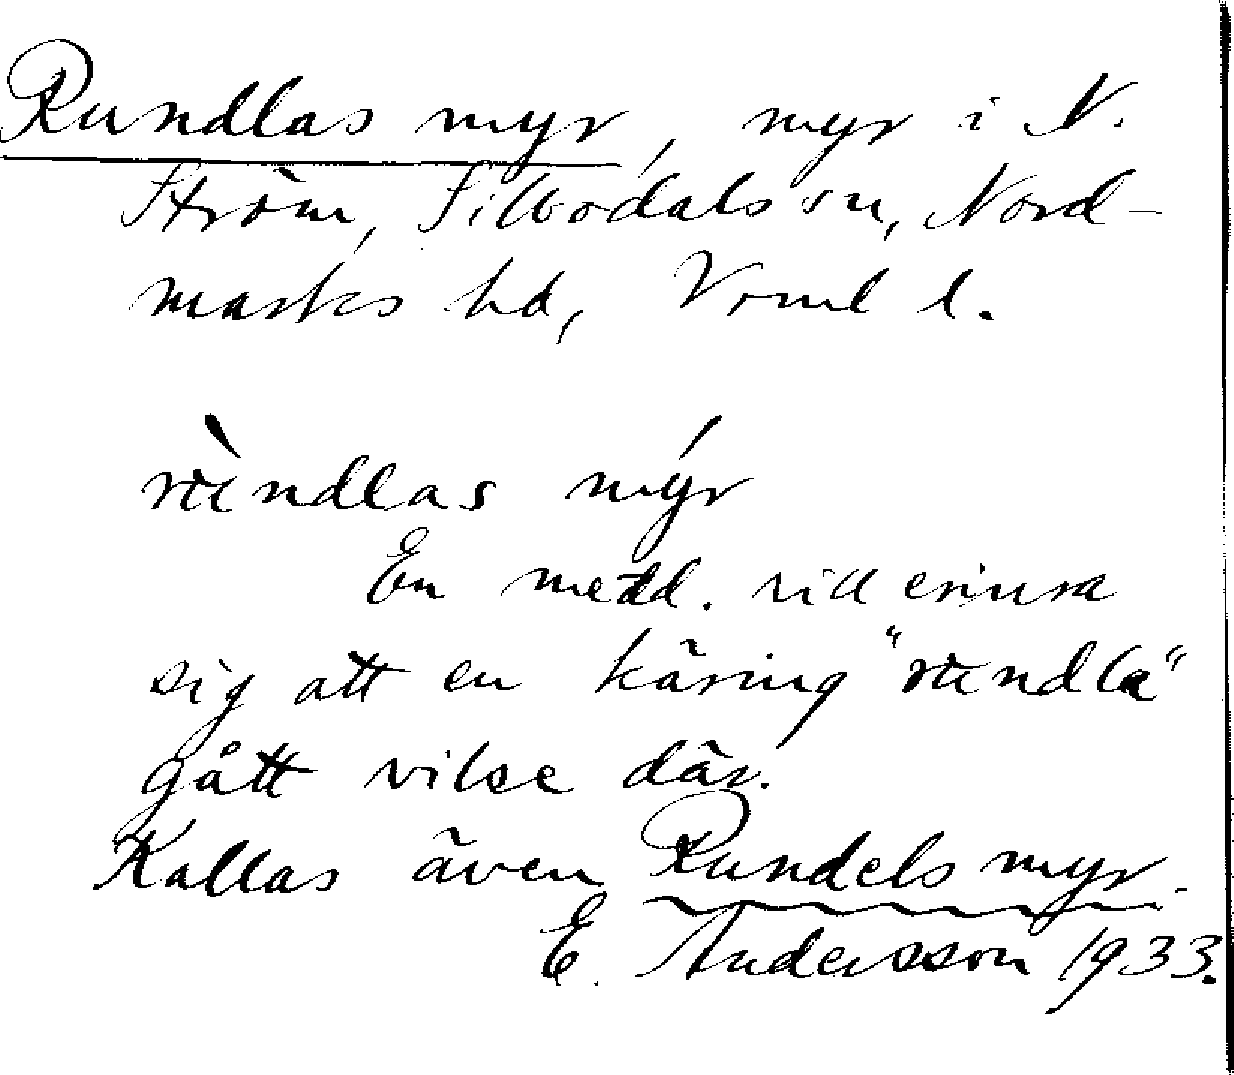 Rundlas myr, myr i N.
Ström, Silbodals sn, Nord-
marks hd, Vrml l.
rʉ̀ndlas mýr
En medd. vill erinra
sig att en käring "rʉndla"
gått vilse där.
Kallas även Rundels myr.
E. Andersson 1933.